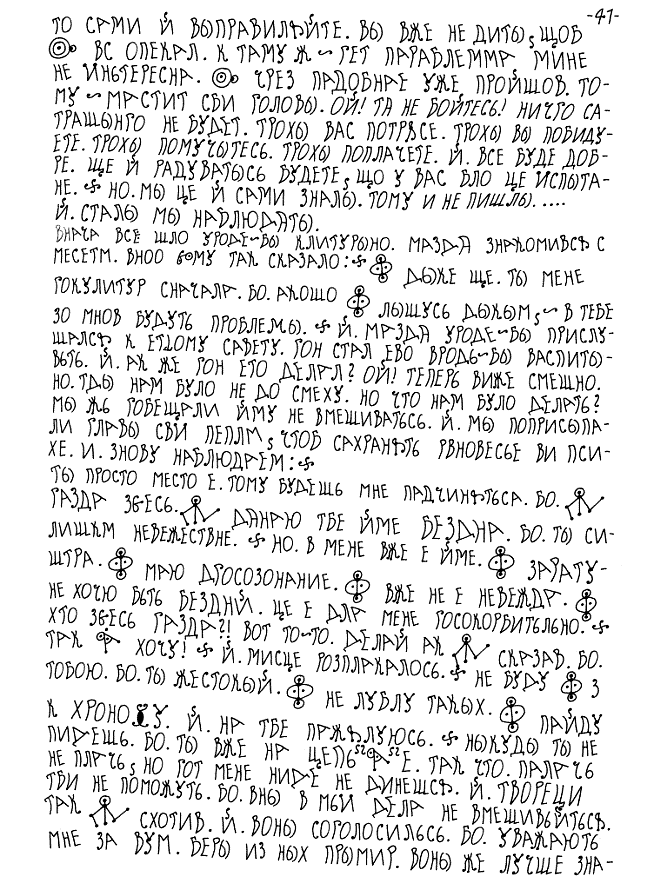 -41-
ТО САМИ Й ВЫПРАВИЛЬЙТЕ. ВЫ ВЖЕ НЕ ДИТЫ, ЩОБ
ВС ОПЕКАЛ. К ТАМУ Ж ~ ГЕТ ПАРАБЛЕММА МИНЕ
НЕ ИНЬТЕРЕСНА. ЧРЕЗ ПАДОБНАЕ УЖЕ ПРОЙШОВ. ТО-
МУ ~ МАСТИТ СВИ ГОЛОВЫ. ОЙ! ТА НЕ БОЙТЕСЬ! НИЧГО СА-
ТРАШЫНГО НЕ БУДЕТ. ТРОХЫ ВАС ПОТРЯСЕ. ТРОХЫ ВЫ ПОБИДУ-
ЕТЕ. ТРОХЫ ПОМУЧЫТЕСЬ. ТРОХЫ ПОПЛАЧЕТЕ. Й. ВСЕ БУДЕ ДОБ-
РЕ. ЩЕ Й РАДУВАТЫСЬ БУДЕТЕ, ЩО У ВАС БЛО ЦЕ ИСПЫТА-
НЕ. НО. МЫ ЦЕ Й САМИ ЗНАЛЫ. ТОМУ И НЕ ПИШЛЫ. ....
Й. СТАЛЫ МЫ НАБЛЮДАТЫ.
ВНАЧА ВСЕ ШЛО УРОДЕ~БЫ КЛИТУРЫНО. МАЗДА ЗНАКОМИВСЬ С
МЕСЕТМ. ВНОО ЕМУ ТАК СКАЗАЛО: ДЫЖЕ ЩЕ. ТЫ МЕНЕ
ГОКУЛИТУР СНАЧАЛА. БО. АКОШО ЛЫШУСЬ ДЫКЫМ, ~ В ТЕБЕ
ЗО МНОВ БУДУТЬ ПРОБЛЕМЫ. Й. МАЗДА УРОДЕ~БЫ ПРИСЛУ-
ШАЛСЬ К ЕТЦОМУ САВЕТУ. ГОН СТАЛ ЕВО ВРОДЬ~БЫ ВАСПИТЫ-
ВЬТЬ. Й. АК ЖЕ ГОН ЕТО ДЕЛАЛ? ОЙ! ТЕПЕРЬ ВИЖЕ СМЕШНО.
НО. ТДЫ НАМ БУЛО НЕ ДО СМЕХУ. НО ЧТО НАМ БУЛО ДЕЛАТЬ?
МЫ ЖЬ ГОБЕЩАЛИ ЙМУ НЕ ВМЕШИВАТЬСЬ. Й. МЫ ПОПРИСЫПА-
ЛИ ГЛАВЫ СВИ ПЕПЛМ, ЧТОБ САХРАНЯТЬ РВНОВЕСЬЕ ВИ ПСИ-
ХЕ. И. ЗНОВУ НАБЛЮДАЕМ:
ТЫ ПРОСТО МЕСТО Е. ТОМУ БУДЕШЬ МНЕ ПАДЧИНЯТЬСА. БО.
ГАЗДА ЗЬЕСЬ. ДАНАЮ ТБЕ ЙМЕ БЕЗДНА. БО. ТЫ СИ-
ЛИШКМ НЕВЕЖЕСТВНЕ. НО. В МЕНЕ ВЖЕ Е ЙМЕ. ЗАРАТУ-
ШТРА. МАЮ ДРОСОЗОНАНИЕ. ВЖЕ НЕ Е НЕВЕЖДА.
НЕ ХОЧЮ БЫТЬ БЕЗДНЙ. ЦЕ Е ДЛА МЕНЕ ГОСОКОРБИТЬЛЬНО.
ХТО ЗЬЕСЬ ГАЗДА?! ВОТ ТО~ТО. ДЕЛАЙ АК СКАЗАВ. БО.
ТАК ХОЧУ! Й. МИСЦЕ РОЗПЛАКАЛОСЬ. НЕ БУДУ З
ТОБОЮ. БО. ТЫ ЖЕСТОКЫЙ. НЕ ЛУБЛУ ТАКЫХ. ПАЙДУ
К ХРОНО У. Й. НА ТБЕ ПАЖЯЛУЮСЬ. НЫКУДЫ ТЫ НЕ
ПИДЕШЬ. БО. ТЫ ВЖЕ НА Е. ТАК ЧТО. ПАЛАЧЬ
НЕ ПЛАЧЬ, НО ГОТ МЕНЕ НИДЕ НЕ ДИНЕШСЬ. Й. ТВОРЕЦИ
ТВИ НЕ ПОМОЖУТЬ. БО. ВНЫ В МЬИ ДЕЛА НЕ ВМЕШИВЬЯТЬСЯ.
ТАК СХОТИВ. Й. ВОНЫ СОГОЛОСИЛЬСЬ. БО. УВАЖАЮТЬ
МНЕ ЗА ВУМ. БЕРЫ ИЗ НЫХ ПРЫМИР. ВОНЫ ЖЕ ЛУЧШЕ ЗНА-